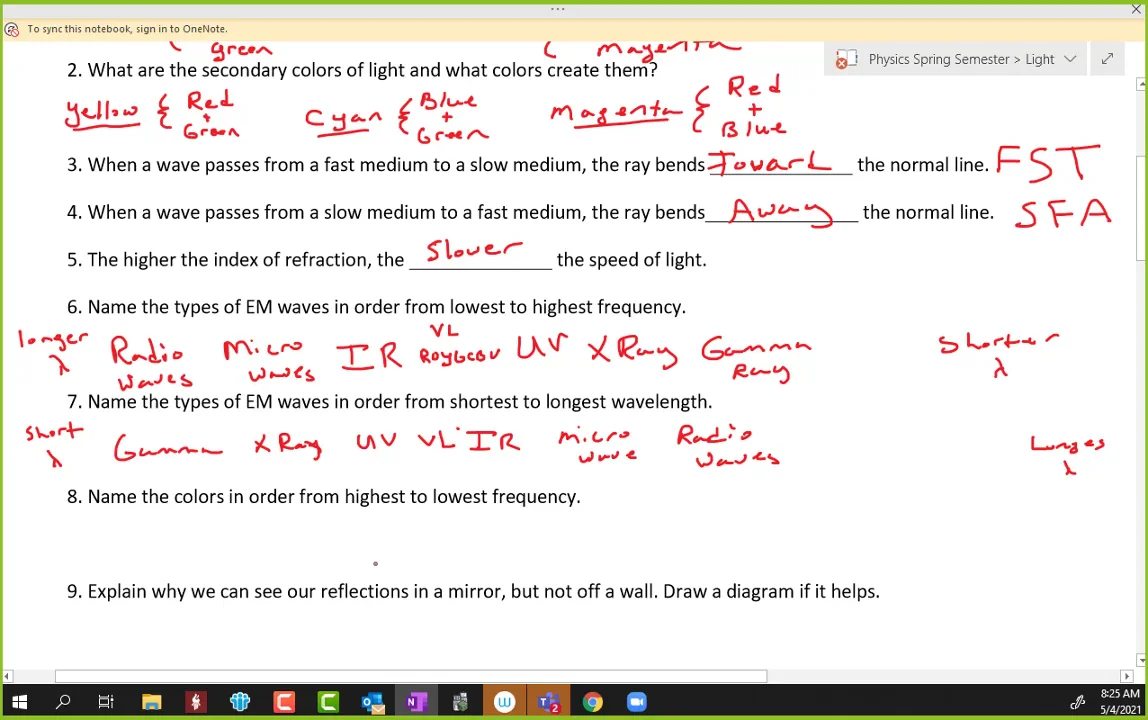 To sync this notebook, sign in to OneNote.
Physics Spring Semester > Light
green
magenta
2. What are the secondary colors of light and what colors create them?
Yellow { Red + Green
Cyan { Blue + Green
magenta { Red + Blue
3. When a wave passes from a fast medium to a slow medium, the ray bends Toward the normal line. FST
4. When a wave passes from a slow medium to a fast medium, the ray bends Away the normal line. SFA
5. The higher the index of refraction, the Slower the speed of light.
6. Name the types of EM waves in order from lowest to highest frequency.
longer λ Radio waves Micro waves IR VL ROYGBV UV X Ray Gamma Ray Shorter λ
7. Name the types of EM waves in order from shortest to longest wavelength.
short λ Gamma X Ray UV VL IR micro wave Radio waves λ
8. Name the colors in order from highest to lowest frequency.
9. Explain why we can see our reflections in a mirror, but not off a wall. Draw a diagram if it helps.
8:25 AM
5/4/2021